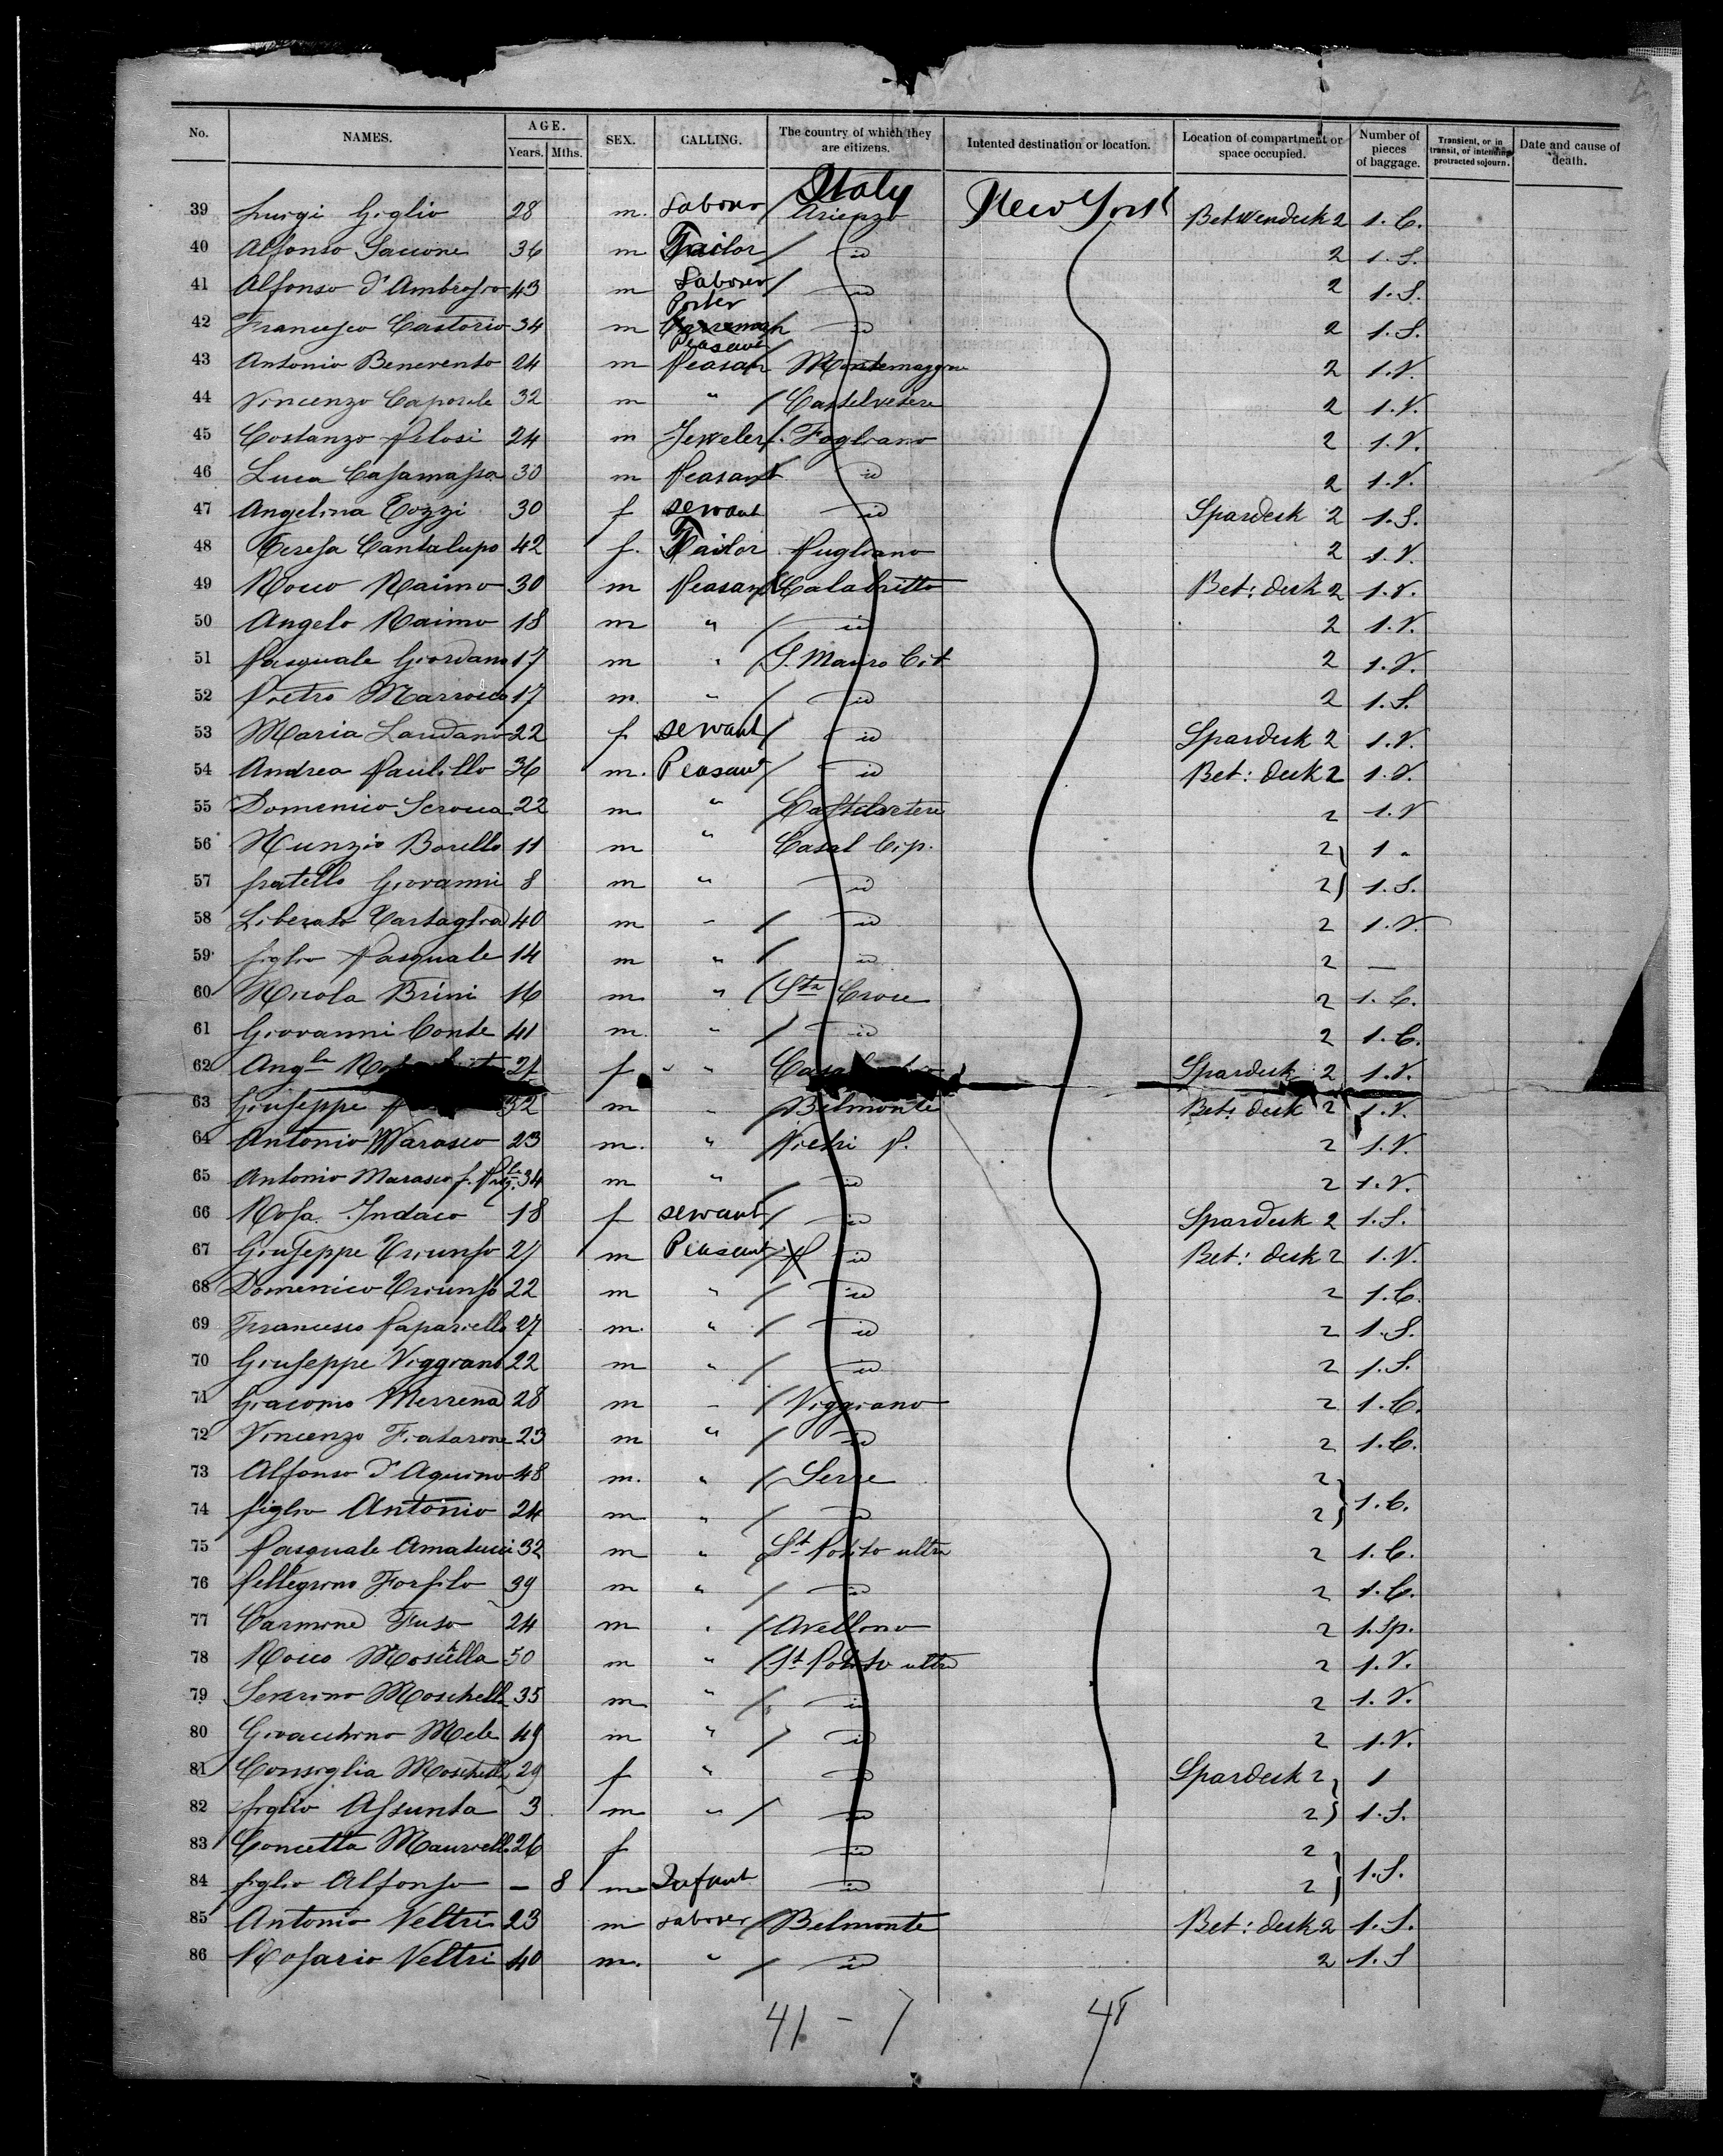 No. NAMES. AGE. Years. Mths. SEX. CALLING. The country of which they are citizens. Intented destination or location. Location of compartment or space occupied. Number of pieces of baggage. Transient, or in transit, or intending protracted sojourn. Date and cause of death.
Italy New York
39 Luigi Giglio 28 m. Laborer Arienzo Betwendeck 2 1. C.
40 Alfonso 36 m Tailor id 2 1. S.
41 Alfonso d'Ambrosio 43 m Laborer id 2 1. S.
Porter
42 Francesco Castorio 34 m id 2 1. S.
Peasant
43 Antonio Benevento 24 m Peasan 2 1. V.
44 Vincenzo Caporale 32 m " Castelvetere 2 1. V.
45 Costanzo Pelosi 24 m Jeweler Fogliano 2 1. V.
46 Luca Casamassa 30 m Peasant id 2 1. V.
47 Angelina Tozzi 30 f servant id Spardeck 2 1. S.
48 Teresa Cantalupo 42 f. Tailor Pugliano 2 1. V.
49 Rocco Raimo 30 m Peasant Calabritto Bet: deck 2 1. V.
50 Angelo Raimo 18 m " id 2 1. V.
51 Pasquale Giordano 17 m " S. Mauro Cit 2 1. V.
52 Pietro Marrocco 17 m. " id 2 1. S.
53 Maria Landano 22 f servant id Spardeck 2 1. V.
54 Andrea Paulillo 36 m. Peasant id Bet: deck 2 1. V.
55 Domenico Scrocca 22 m " Castelvetere 2 1. V
56 Nunzio Borello 11 m " Casal Cip. 2 1 "
57 fratello Giovanni 8 m " id 2 1. S.
58 Liberato Tartaglia 40 m " id 2 1. V.
59 figlio Pasquale 14 m " id 2 —
60 Nicola Brini 16 m " Sta Croce 2 1. C.
61 Giovanni Conte 41 m. " id 2 1. C.
62 Angla 27 f " Spardeck 2 1. V.
63 Giuseppe 32 m " Belmonte Bet: deck 2 1. V.
64 Antonio Marasco 23 m. " Vietri P. 2 1. V.
65 Antonio Marasco f. 34 m " id 2 1. V.
66 Rosa Indaco 18 f servant id Spardeck 2 1. S.
67 Giuseppe Triunfo 27 m Peasant id Bet: deck 2 1. V.
68 Domenico Triunfo 22 m " id 2 1. C.
69 Francesco Papariello 27 m. " id 2 1. S.
70 Giuseppe Viggiano 22 m " id 2 1. S.
71 Giacomo Messena 28 m " Viggiano 2 1. C.
72 Vincenzo Fratarone 23 m " id 2 1. C.
73 Alfonso d'Aquino 48 m. " Serre 2
74 figlio Antonio 24 m " id 2 1. C.
75 Pasquale Amatucci 32 m " St Potito ultra 2 1. C.
76 Pellegrino Forfilo 39 m " id 2 1. C.
77 Carmine Fuso 24 m " Avellino 2 1. Sp.
78 Rocco 50 m " St Potito ultra 2 1. V.
79 Severino Moschella 35 m " id 2 1. V.
80 Giovacchino Mele 49 m " id 2 1. V.
81 Consiglia Moschella 29 f " id Spardeck 2 1
82 figlio Assunta 3 m " id 2 1. S.
83 Concetta Mauriello 26 f id 2
84 figlio Alfonso — 8 m Infant id 2 1. S.
85 Antonio Veltri 23 m Laborer Belmonte Bet: deck 2 1. S.
86 Rosario Veltri 40 m. " id 2 1. S
41 - 7 48